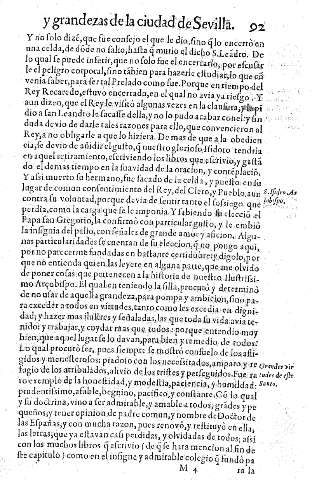 y grandezas de la ciudad de Sevilla. 92
Y no solo dizē, que fue consejo el que le dio, sino q̄ lo encerrò en
vna celda, de dōde no salio, hasta q̄ murio el dicho S. Leādro. De
lo qual se puede inferir, que no solo fue el encerrarlo, por escusar
le el peligro corporal, sino tābien para hazerle estudiar, lo que cō
venia saber, para ser tal Prelado como fue. Porque en tiempo del
Rey Recaredo, estuvo encerrado, en el qual no avia ya riesgo. Y
aun dizen, que el Rey le visitò algunas vezes en la clausura, y
dio a san Leandro le sacasse della, y no lo pudo acabar conel: y sin
duda devio de darle tales razones para ello, que convencieron al
Rey, a no obligarle a que lo hiziera. De mas de que a la obedien
cia, se devio de añidir el gusto, q̄ nuestro glorioso Isidoro tendria
en aquel retiramiento, escriviendo los libros que escrivio, y gastā
do el demas tiempo en la suavidad de la oracion, y contēplaciō.
Y assi muerto su hermano, fue sacado de la celda, y puesto en su
lugar de comun consentimiento del Rey, del Clero, y Pueblo, aun
contra su voluntad, porque devia de sentir tanto el sossiego que
perdia, como la carga que se le imponia. Y sabiendo su elecciō el
Papa san Gregorio, la confirmò con particular gusto, y le embiò
la insignia del palio, con señales de grande amor, y aficion. Algu-
nas particularidades se cuentan de su eleccion, q̄ no pongo aqui,
por no parecerme fundadas en bastante certidūbre: y digolo, por
que no entienda quien las leyere en alguna parte, que me olvido
de poner cosas que pertenecen a la historia de nuestro Ilustrissi-
mo Arçobispo. El qual en teniendo la silla, procurò y determinò
de no usar de aquella grandeza, para pompa y ambicion, sino pa-
ra exceder a todos en virtudes, tanto como les excedia en digni-
dad, y hazer mas ilustres y señaladas, las que toda su vida avia te-
nido y trabajar, y cuydar mas que todos: porque entendio muy
bien, que aquel lugar se lo davan, para bien y remedio de todos:
Lo qual procurò ser, pues siempre se mostrò consuelo de los afli-
gidos y menesterosos: piadoso con los necessitados, amparo y re
fugio de los atribulados, alivio de los tristes y perseguidos. Fue ra
ro exemplo de la honestidad, y modestia, paciencia, y humildad:
prudentissimo, afable, benigno, pacifico, y constante. Cō lo qual
y su doctrina, vino a ser admirable, y amable a todos, grādes y pe
queños, y tener opinion de padre comun, y nombre de Doctor de
las Españas, y con mucha razon, pues renovò, y restituyò en ella,
las letras, que ya estavan casi perdidas, y olvidadas de todos; assi
con los muchos libros q̄ escrivio (de q̄ se harà mencion al fin de
ste capitulo) como en el insigne y admirable colegio q̄ fundò pa
M 4 ra la
S. Isidro Ar
çobispo.
Grandes vir
tudes de este
Santo.